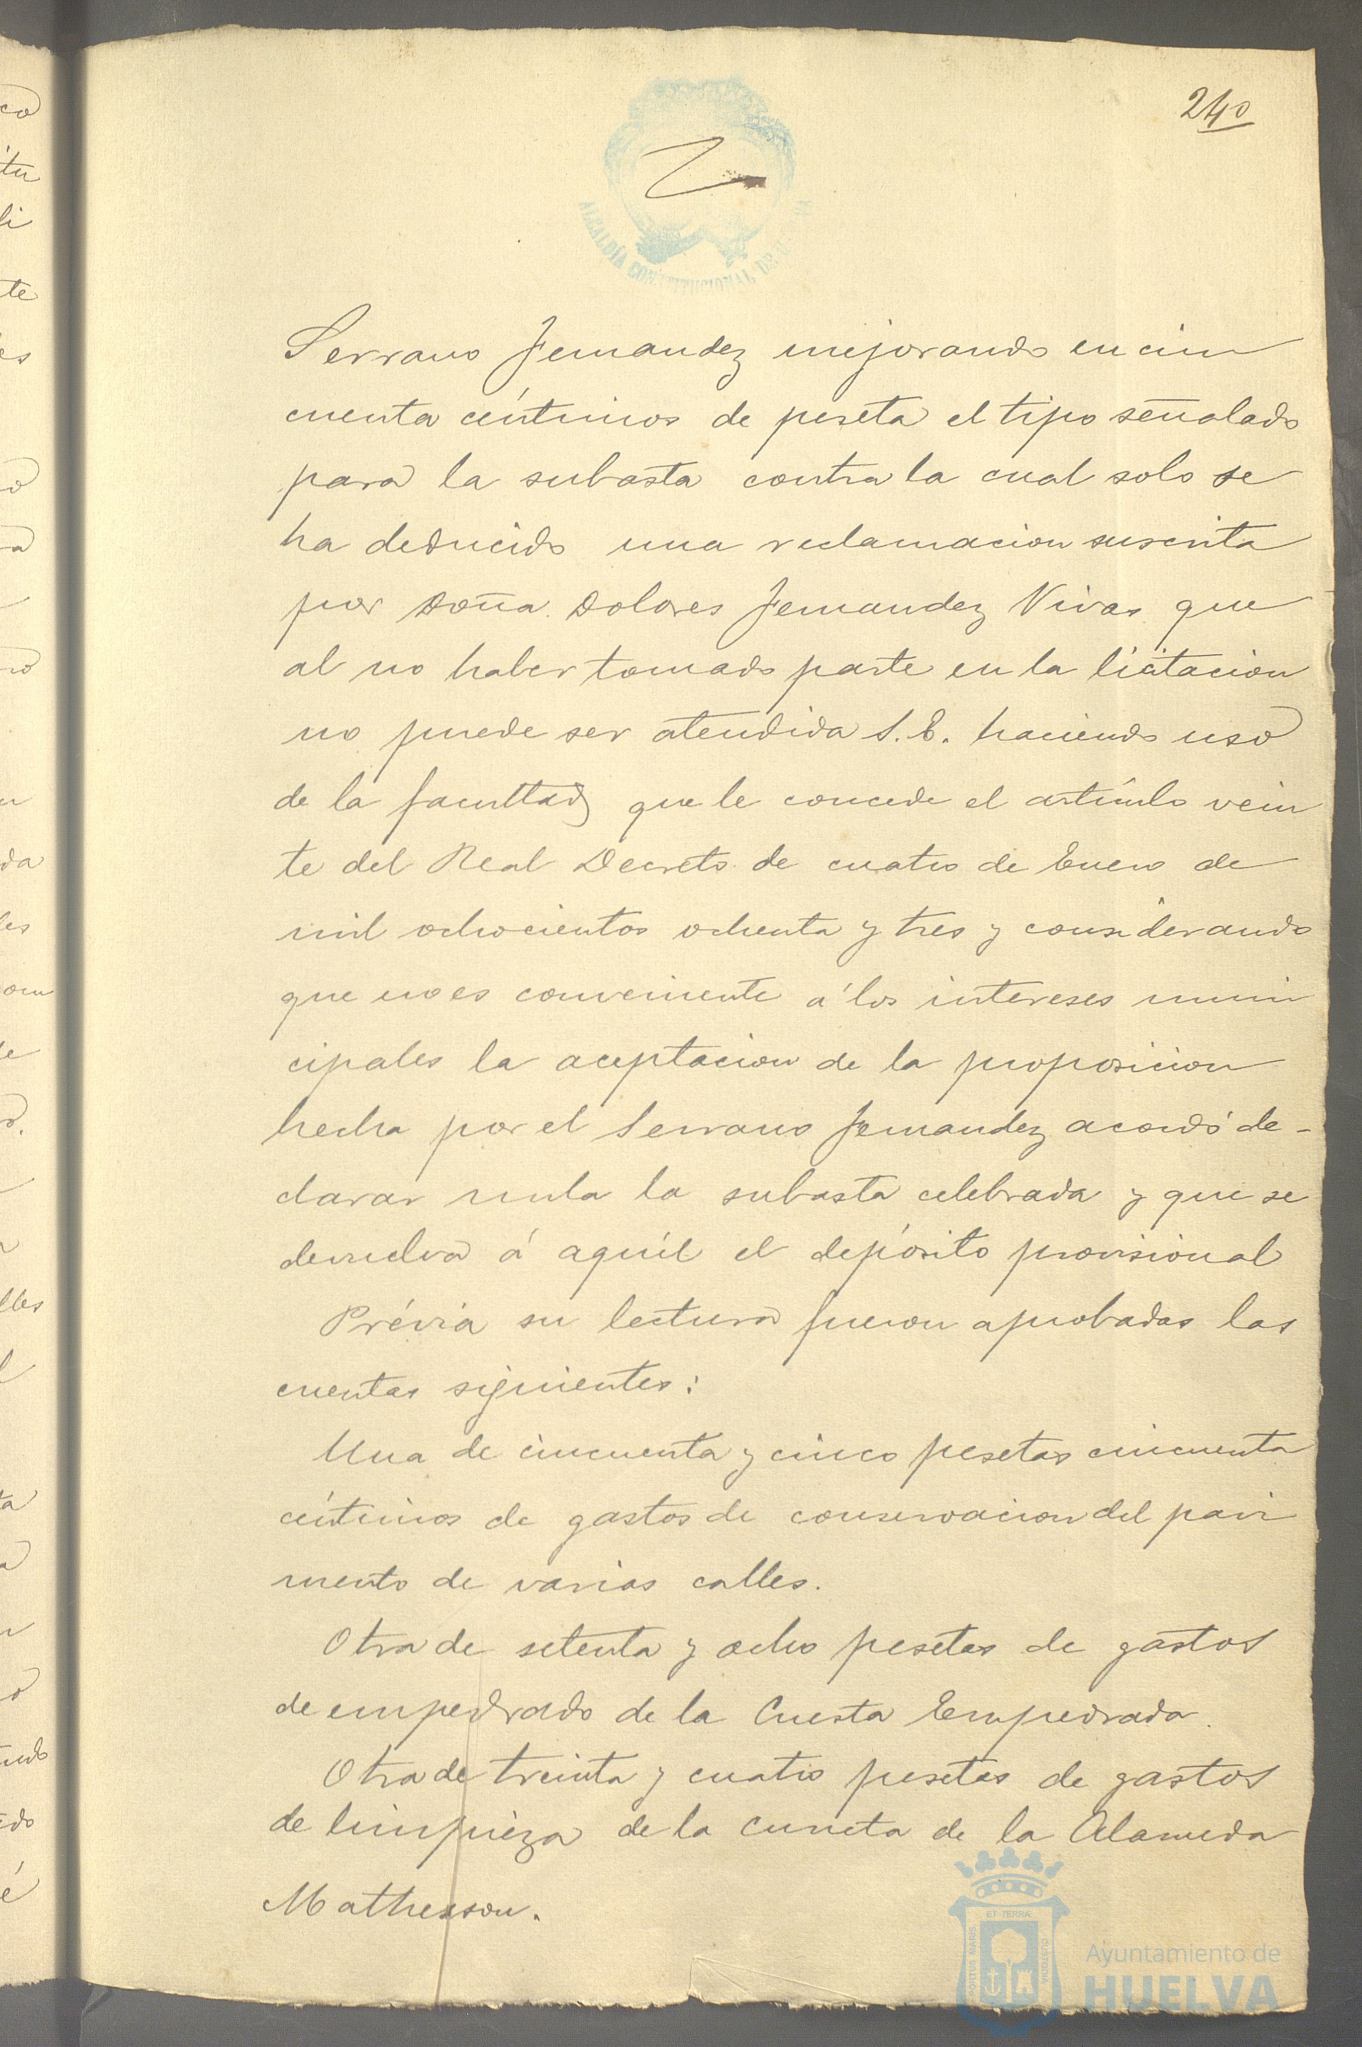 240
ALCALDÍA CONSTITUCIONAL DE
Serrano Fernandez mejorando en cin
cuenta céntimos de peseta el tipo señalado
para la subasta contra la cual solo se
ha deducido una reclamacion suscrita
por Doña Dolores Fernandez Vivas que
al no haber tomado parte en la licitacion
no puede ser atendida S. E. haciendo uso
de la facultad que le concede el artículo vein
te del Real Decreto de cuatro de Enero de
mil ochocientos ochenta y tres y considerando
que no es conveniente á los intereses muni
cipales la aceptacion de la proposicion
hecha por el Serrano Fernandez acordó de-
clarar nula la subasta celebrada y que se
devuelva á aquél el depósito provisional
Prévia su lectura fueron aprobadas las
cuentas siguientes:
Una de cincuenta y cinco pesetas cincuenta
céntimos de gastos de conservacion del pavi
mento de varias calles.
Otra de setenta y ocho pesetas de gastos
de empedrado de la Cuesta Empedrada.
Otra de treinta y cuatro pesetas de gastos
de limpieza de la cuneta de la Alameda
Mathesson.
PORTUS MARIS ET TERRAE CUSTODIA
Ayuntamiento de
HUELVA